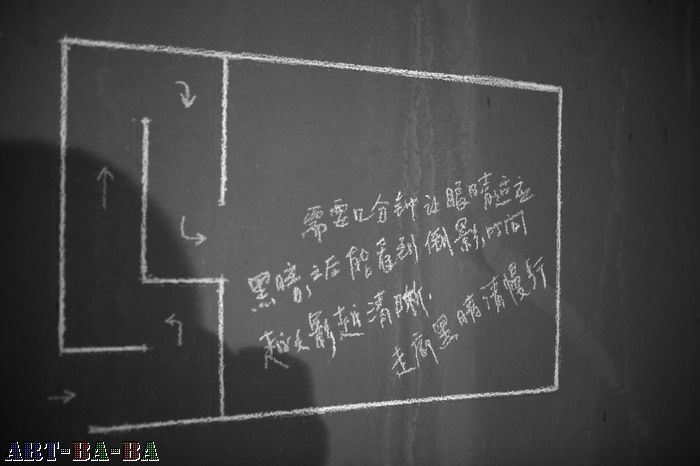 需要几分钟让眼睛适应
黑暗,之后能看到倒影,时间
越久影越清晰.
走廊黑暗请慢行
ART-BA-BA